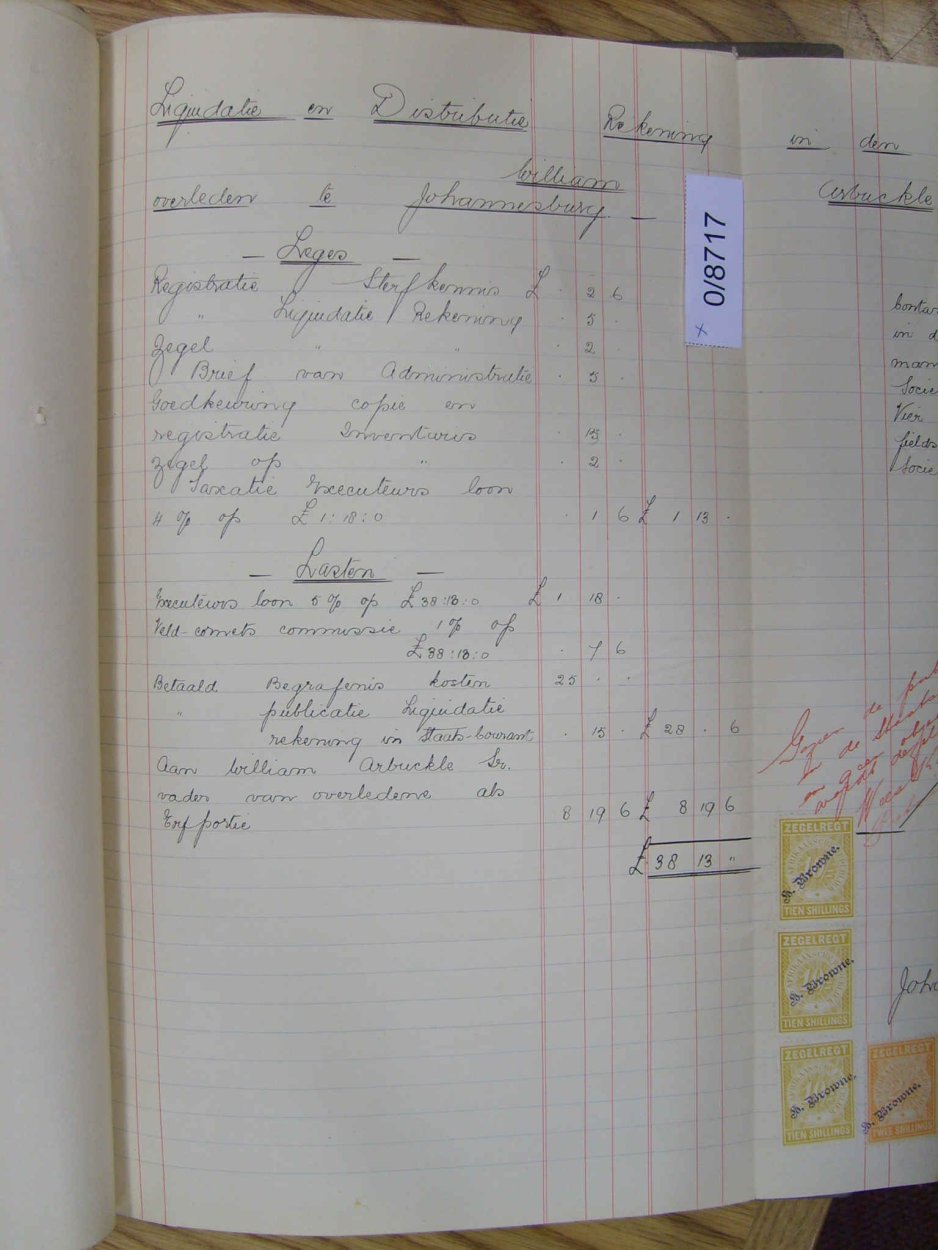 Liquidatie en Distributie Rekening in den
William Arbuckle
overleden te Johannesburg. —
— Leges —
Registratie Sterfkennis £ . 2 6
" Liquidatie Rekening . 5 .
Zegel " " . 2
Brief van Administratie . 5 .
Goedkeuring copie en
registratie Inventuris . 15 .
Zegel op " . 2 .
Taxatie Executeurs loon
4 % op £ 1:18:0 . 1 6 £ 1 13 .
— Lasten —
Executeurs loon 5 % op £38:13:0 £ 1 18 .
Veld-cornets commissie 1 % op
£38:13:0 . 7 6
Betaald Begrafenis kosten 25 . .
" publicatie Liquidatie
rekening in Staats-Courant . 15 . £ 28 . 6
Aan William Arbuckle Sr.
vader van overledene als
Erfportie 8 19 6 £ 8 19 6
£ 38 13 "
0/8717
x
in d
Socie
Vier
fields
Socie
ZEGELREGT
H. Browne.
TIEN SHILLINGS
ZEGELREGT
H. Browne.
TIEN SHILLINGS
ZEGELREGT
H. Browne.
TIEN SHILLINGS
ZEGELREGT
H. Browne.
TWEE SHILLINGS
Joh